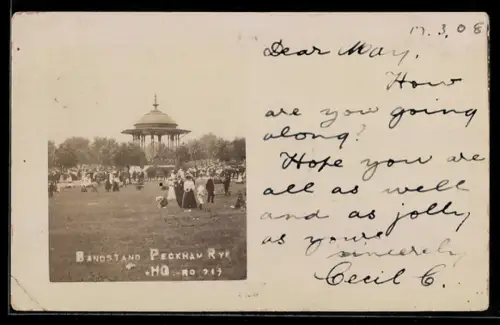 17.3.08
Dear May,
How
are you going
along?
Hope you are
all as well
and as jolly
as yours
sincerely
Cecil C.
BANDSTAND PECKHAM RYE
HQ NO 719